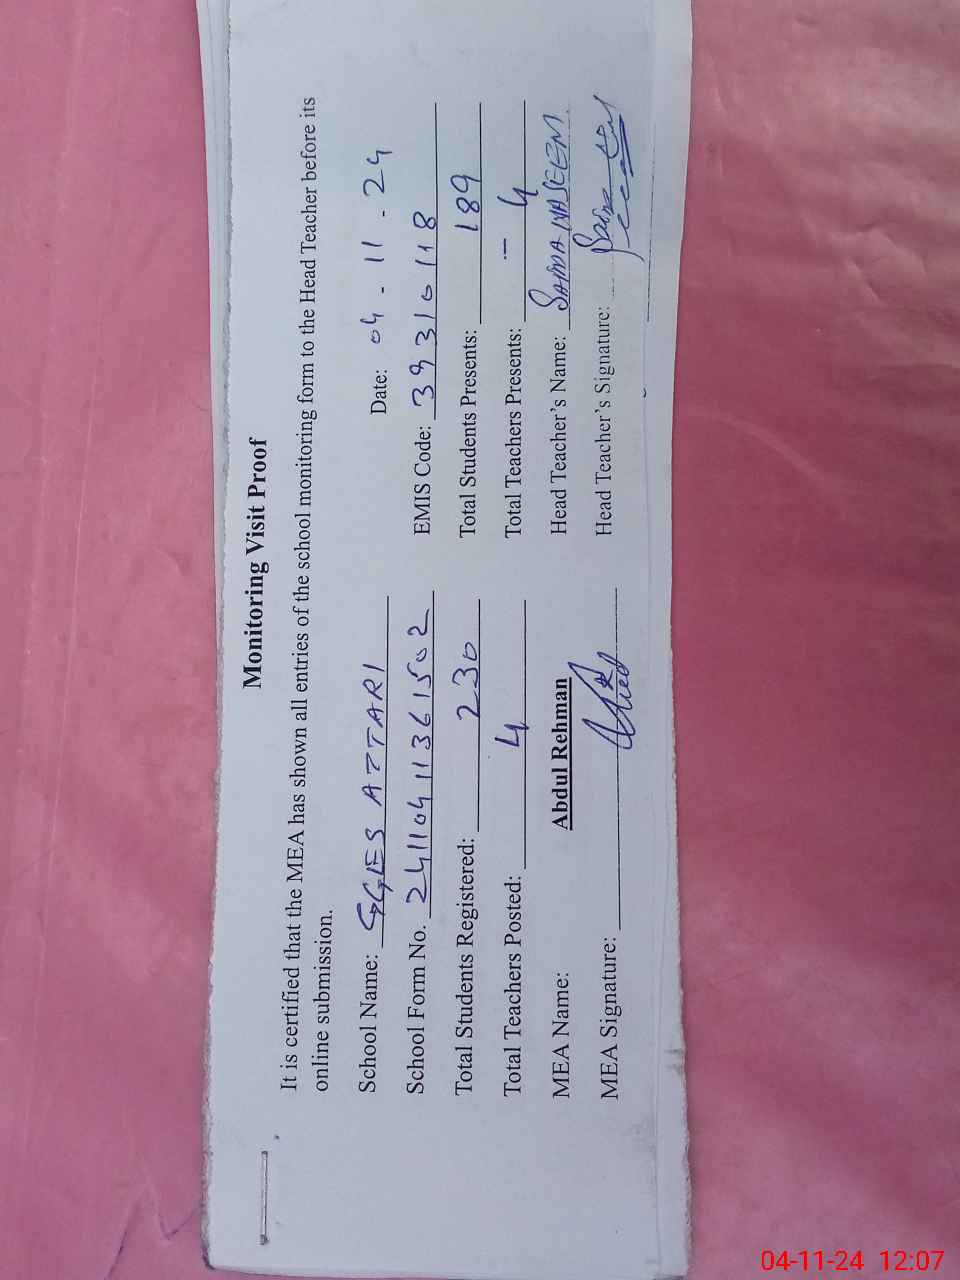 Monitoring Visit Proof
It is certified that the MEA has shown all entries of the school monitoring form to the Head Teacher before its
online submission.
Date: 04-11-24
School Name: GGES ATTARI
School Form No. 24110411361502 EMIS Code: 39310118
Total Students Registered: 230 Total Students Presents: 189
Total Teachers Posted: 4 Total Teachers Presents: - 4
MEA Name: Abdul Rehman Head Teacher's Name: SAIMA NASEEM
MEA Signature: Head Teacher's Signature:
04-11-24 12:07